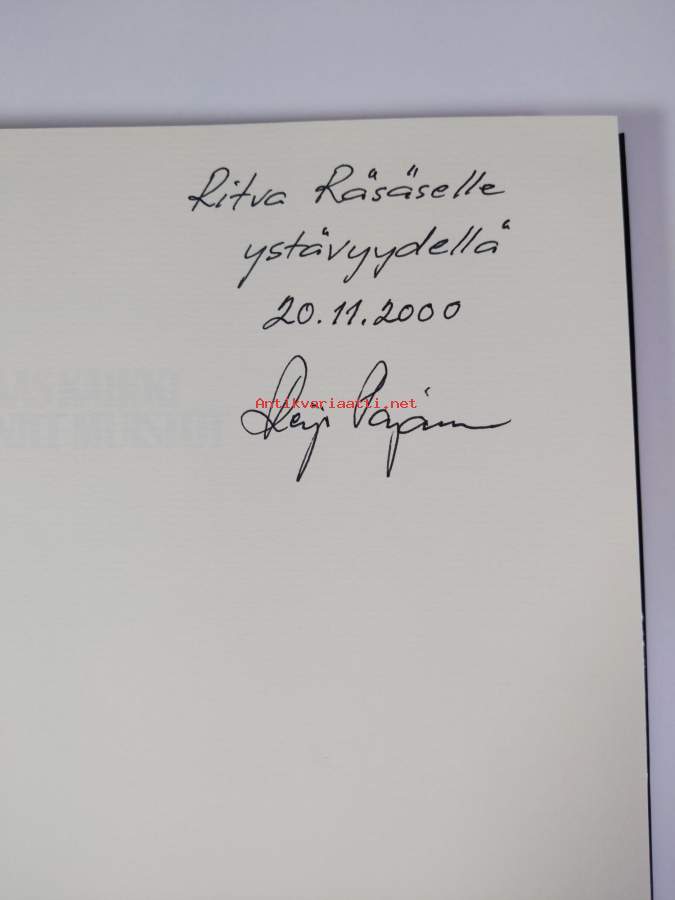 Ritva Räsäselle
ystävyydellä
20.11.2000
Antikvariaatti.net